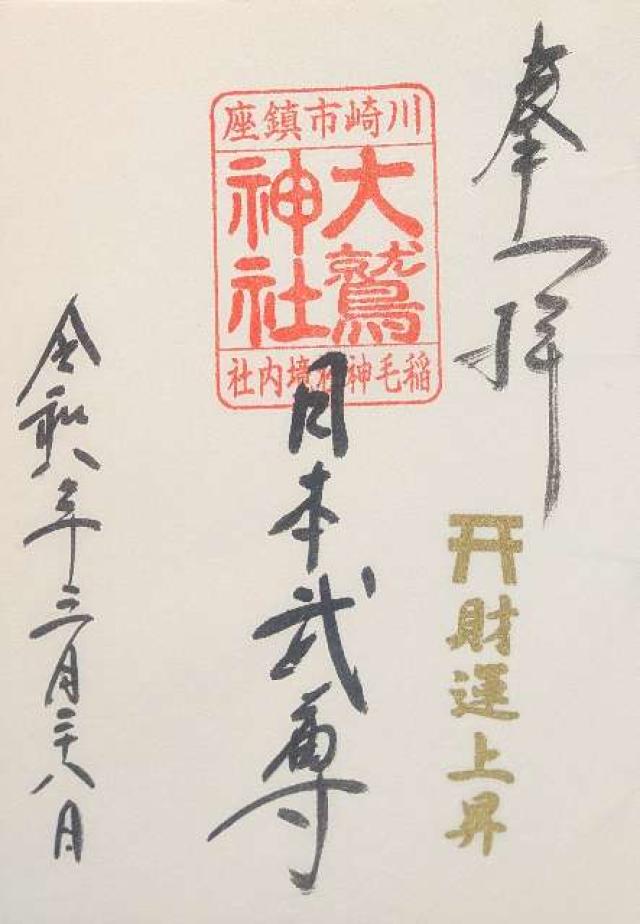 奉拝
財運上昇
川崎市鎮座
大鷲
神社
稲毛神社境内社
日本武尊
令和八年三月二十八日